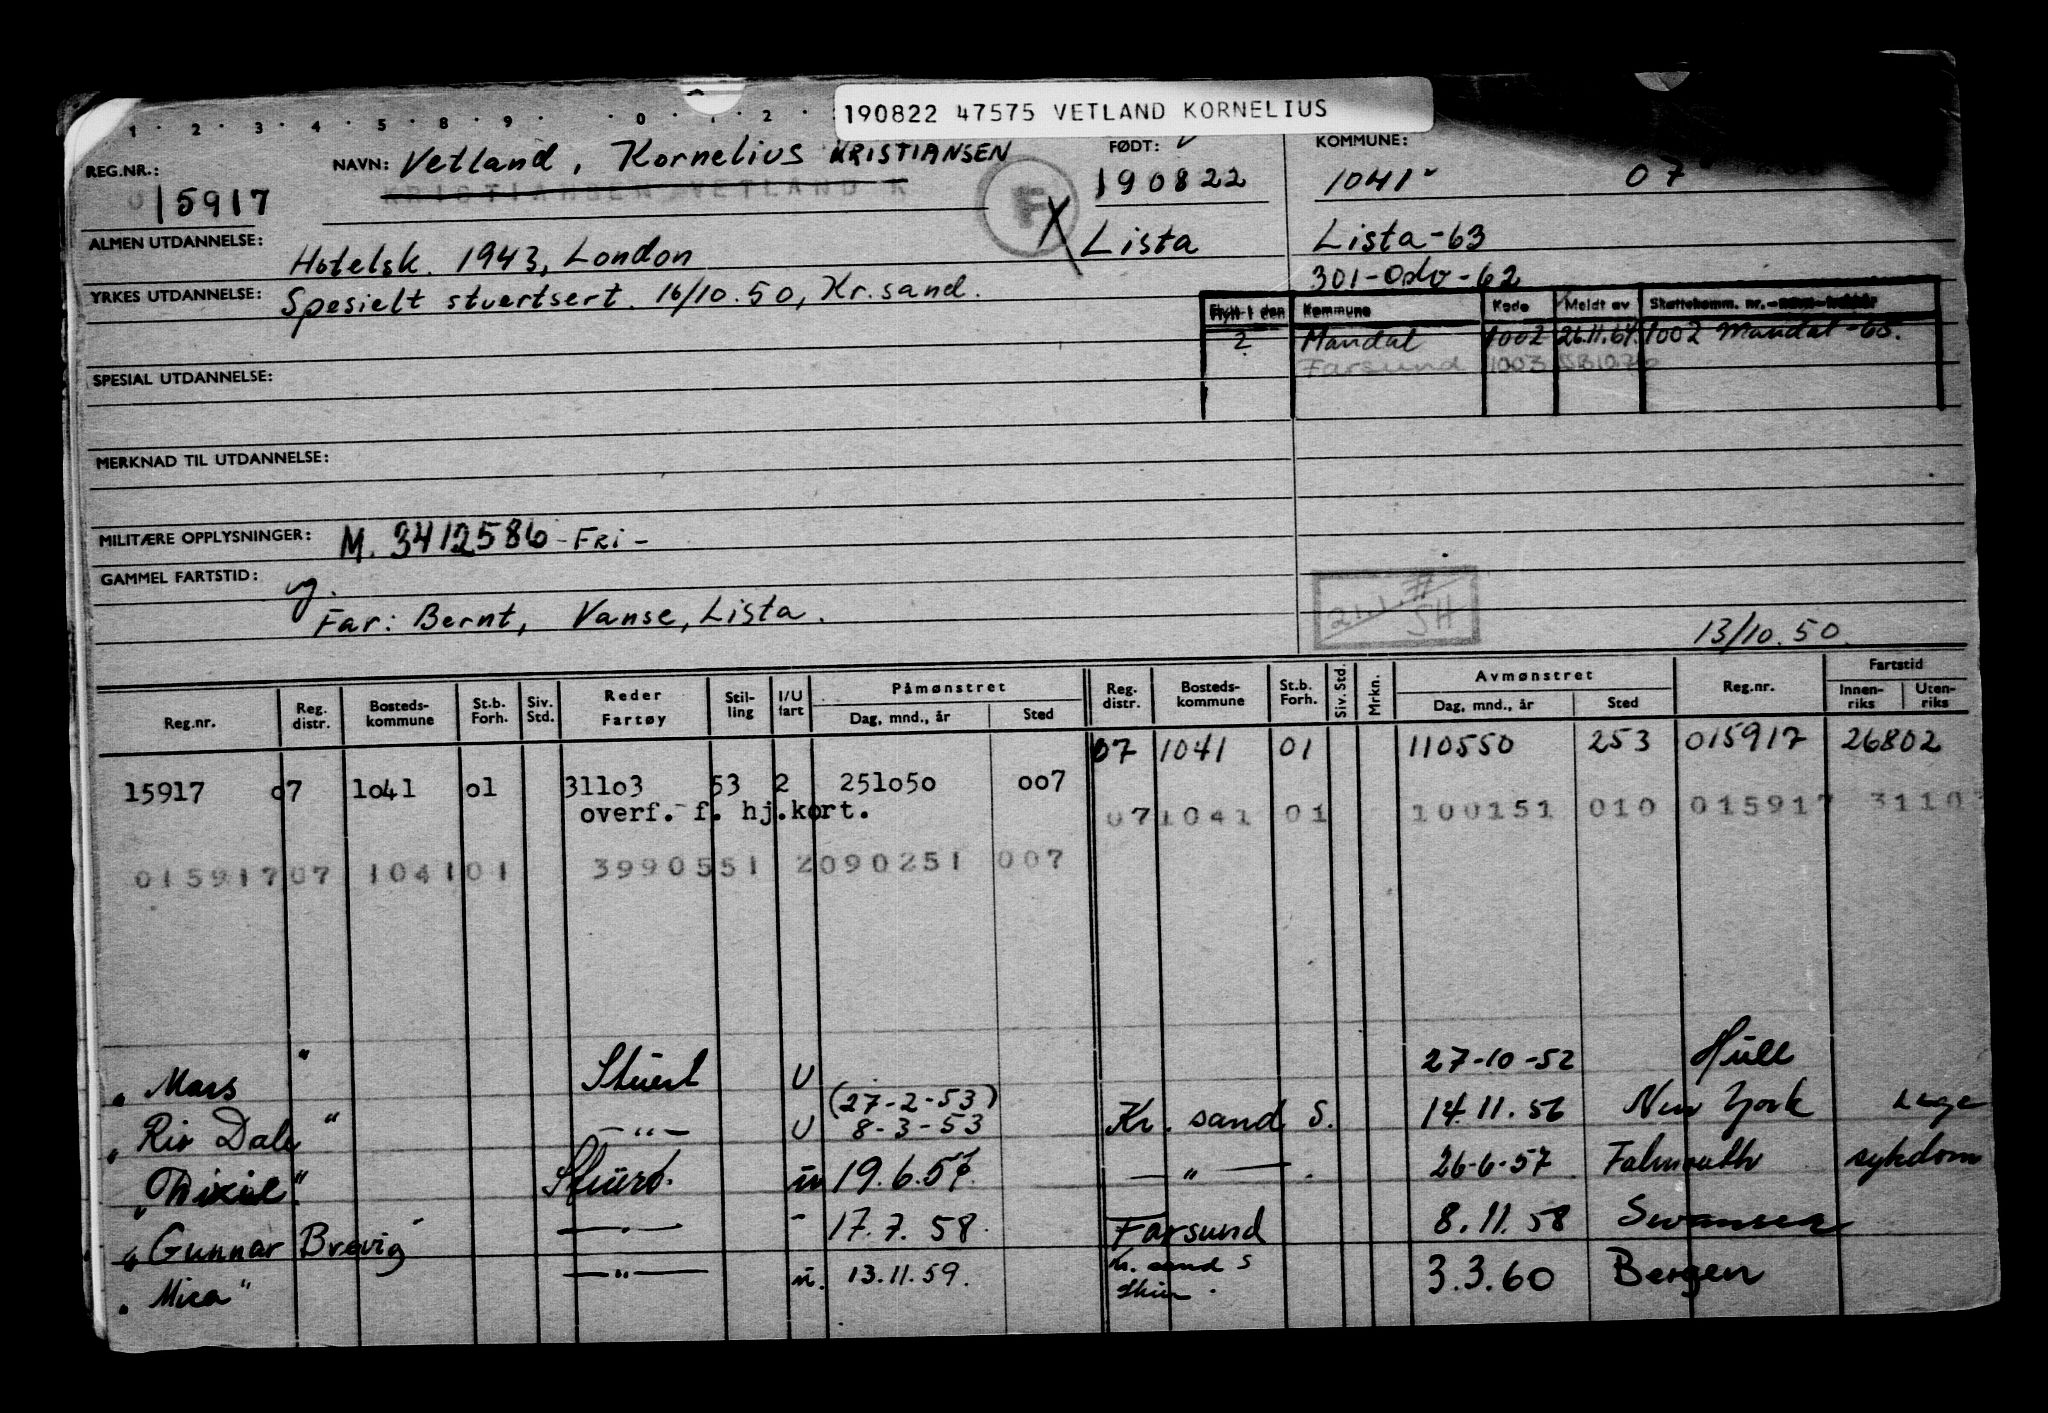 190822 47575 VETLAND KORNELIUS
1 · 2 · 3 · 4 · 5 · 8 · 9 · · 0 · 1 · 2 ·
REG.NR.: 015917
NAVN: Vetland, Kornelius KRISTIANSEN
KRISTIANSEN VETLAND K
F
X
FØDT: 190822
Lista
KOMMUNE: 1041 07
Lista-63
301-Oslo-62
ALMEN UTDANNELSE: Hotelsk. 1943, London
YRKES UTDANNELSE: Spesielt stuertsert. 16/10.50, Kr.sand.
Flytt i den Kommune Kode Meldt av Skattekomm. nr.
2 Mandal 1002 26.11.64. 1002 Mandal-65.
Farsund 1003
SPESIAL UTDANNELSE:
MERKNAD TIL UTDANNELSE:
MILITÆRE OPPLYSNINGER: M. 3412586 -FRI-
GAMMEL FARTSTID: ug.
Far: Bernt, Vanse, Lista.
SH
13/10.50.
Reg.nr. Reg. distr. Bosteds-kommune St.b. Forh. Siv. Std. Reder Fartøy Stil-ling I/U fart Påmønstret Dag, mnd., år Sted Reg. distr. Bosteds-kommune St.b. Forh. Siv. Std. Mrkn. Avmønstret Dag, mnd., år Sted Reg.nr. Fartstid Innen-riks Uten-riks
07 1041 01 110550 253 015917 26802
15917 07 1041 01 31103 53 2 251050 007
overf. f. hj.kort.
07 1041 01 100151 010 015917 3110
015917 07 1041 01 39905 51 2 090251 007
" Mars " Stuert U 27-10-52 Hull
(27-2-53)
" Rio Dale " -"- U 8-3-53 Kr. sand S. 14.11.56 New York
" " Stuert. u 19.6.57. -"- 26-6-57 Falmouth sykdom
" Gunnar Brøvig - 17.7.58. Farsund 8.11.58 Swansea
" Mica " -"- u. 13.11.59. Kr. sand S 3.3.60 Bergen